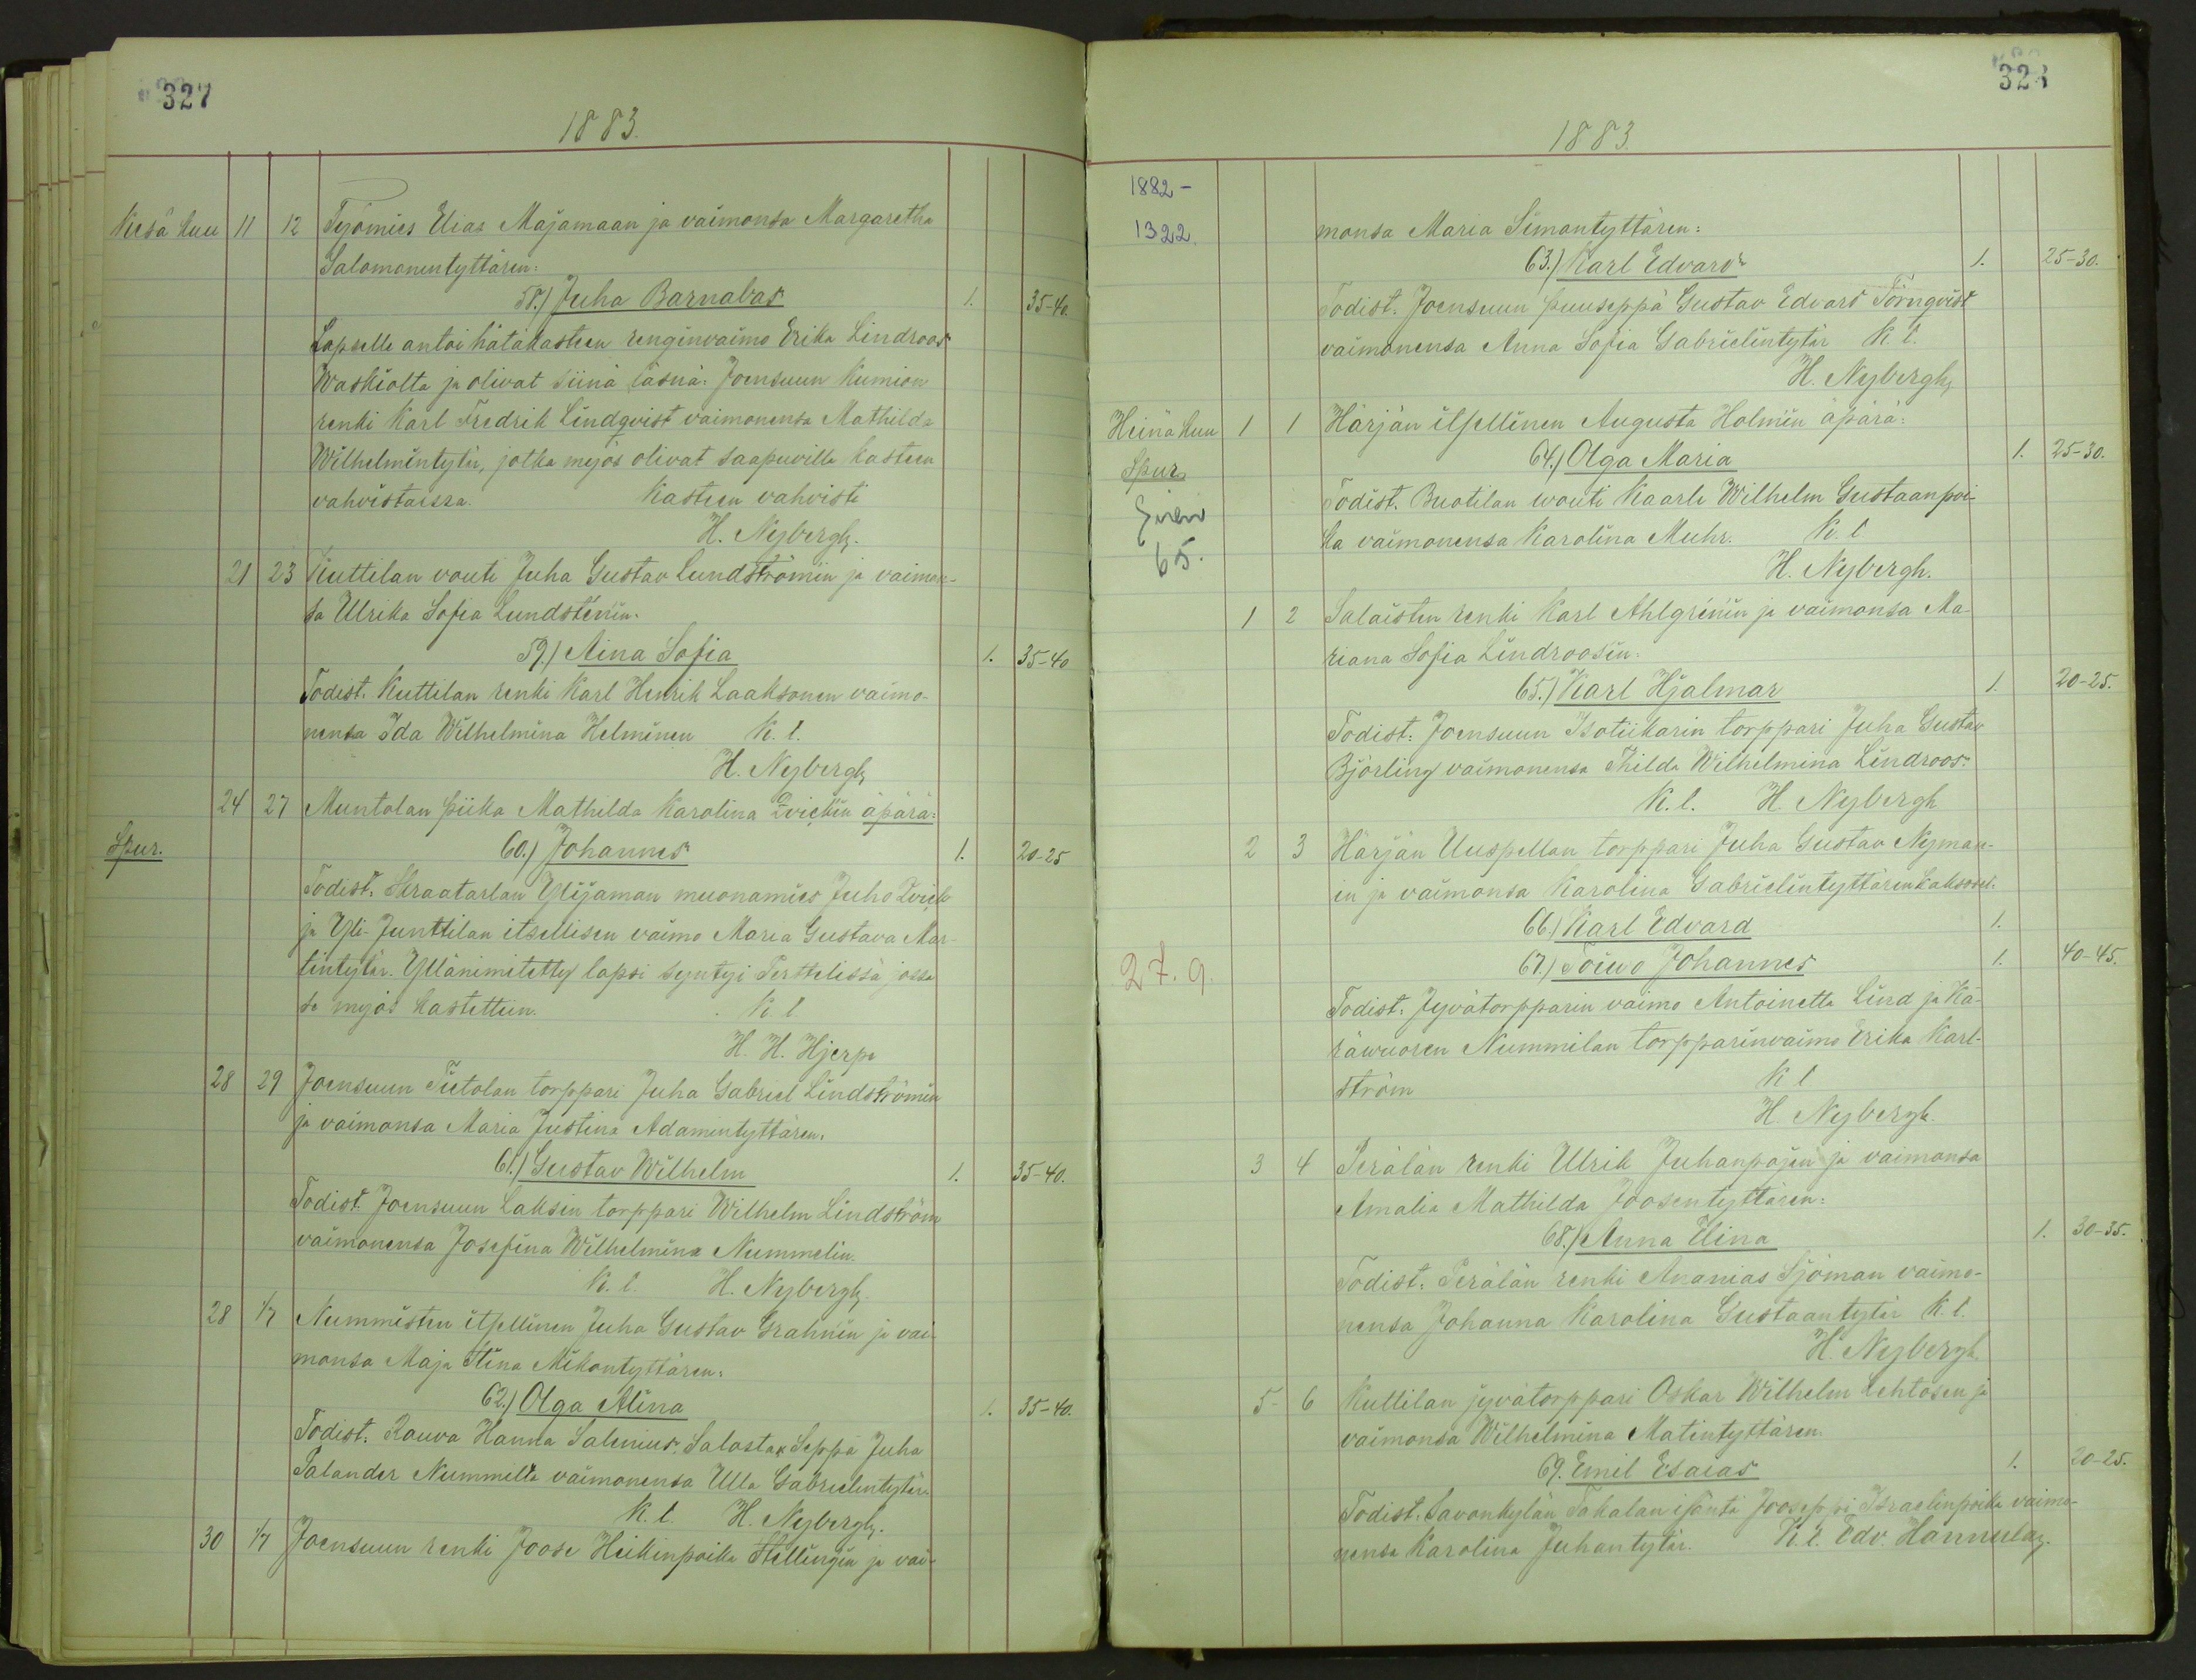 327
1883.
Kesä kuu 11 12 Työmies Elias Majamaan ja vaimonsa Margaretha
Salomonentyttären:
58.) Juha Barnabas 1. 35-40.
Lapselle antoi hätäkasteen renginvaimo Erika Lindroos
Waskiolta ja olivat siinä läsnä: Joensuun Kumion
renki Karl Fredrik Lindqvist vaimonensa Mathilda
Wilhelmintytär, jotka myös olivat saapuvilla kasteen
vahvistaissa. Kasteen vahvisti
H. Nybergh.
21 23 Kuttilan vouti Juha Gustav Lundströmin ja vaimon-
sa Ulrika Sofia Lundsténin.
59.) Aina Sofia 1. 35-40
Todist. Kuttilan renki Karl Henrik Laaksonen vaimo-
nensa Ida Wilhelmina Helminen K. l.
H. Nybergh
24 27 Muntolan piika Mathilda Karolina Qvickin äpärä:
Spur. 60.) Johannes 1. 20-25
Todist. Straatarlan Ylijaman muonamies Juho Qvick
ja Yli-Junttilan itsellisen vaimo Maria Gustava Mar-
tintytär. Yllänimitetty lapsi syntyi Perttelissä jossa
se myös kastettiin. K. l
H. H. Hjerpe
28 29 Joensuun Tietolan torppari Juha Gabriel Lindströmin
ja vaimonsa Maria Justina Adamintyttären.
61.) Gustav Wilhelm 1. 35-40.
Todist. Joensuun Laksin torppari Wilhelm Lindström
vaimonensa Josefina Wilhelmina Nummelin.
K. l. H. Nybergh.
28 1/7 Nummisten itsellinen Juha Gustav Grahnin ja vai-
monsa Maja Stina Mikontyttären.
62.) Olga Alina 1. 35-40.
Todist. Rouva Hanna Salenius Salosta, Seppä Juha
Salander Nummilta vaimonensa Ulla Gabrielintytär.
K. l. H. Nybergh.
30 1/7 Joensuun renki Joose Heikinpoika Stellingin ja vai-
328
1883.
1882-
1322.
monsa Maria Simontyttären:
63.) Karl Edvard 1. 25-30.
Todist. Joensuun puuseppä Gustav Edvard Törnqvist
vaimonensa Anna Sofia Gabrielintytär K. l.
H. Nybergh
Heinä kuu 1 1 Härjän itsellinen Augusta Holmin äpärä:
Spur. 64.) Olga Maria 1. 25-30.
Todist. Buotilan wouti Kaarle Wilhelm Gustaanpoi-
65. ka vaimonensa Karolina Muhr. K. l
H. Nybergh.
1 2 Salaisten renki Karl Ahlgrénin ja vaimonsa Ma-
riana Sofia Lindroosin:
65.) Karl Hjalmar 1. 20-25.
Todist: Joensuun Isotiikarin torppari Juha Gustav
Björling vaimonensa Thilda Wilhelmina Lindroos.
K. l. H. Nybergh
2 3 Härjän Uuspellan torppari Juha Gustav Nyman-
in ja vaimonsa Karolina Gabrielintyttären kaksoset:
66.) Karl Edvard 1.
27.9. 67.) Toiwo Johannes 1. 40-45.
Todist. Jyvätorpparin vaimo Antoinetta Lind ja Kä-
räwuoren Nummilan torpparinvaimo Erika Karl-
ström K l
H. Nybergh.
3 4 Perälän renki Ulrik Juhanpojan ja vaimonsa
Amalia Mathilda Joosentyttären:
68.) Anna Elina 1. 30-35.
Todist. Perälän renki Ananias Sjöman vaimo-
nensa Johanna Karolina Gustaantytär K. l.
H. Nybergh.
5 6 Kuttilan jyvätorppari Oskar Wilhelm Lehtosen ja
vaimonsa Wilhelmina Matintyttären.
69. Emil Esaias 1. 20-25.
Todist. Savonkylän Takalan isäntä Jooseppi Israelinpoika vaimo-
nensa Karolina Juhantytär. K. l. Edv. Hannula.